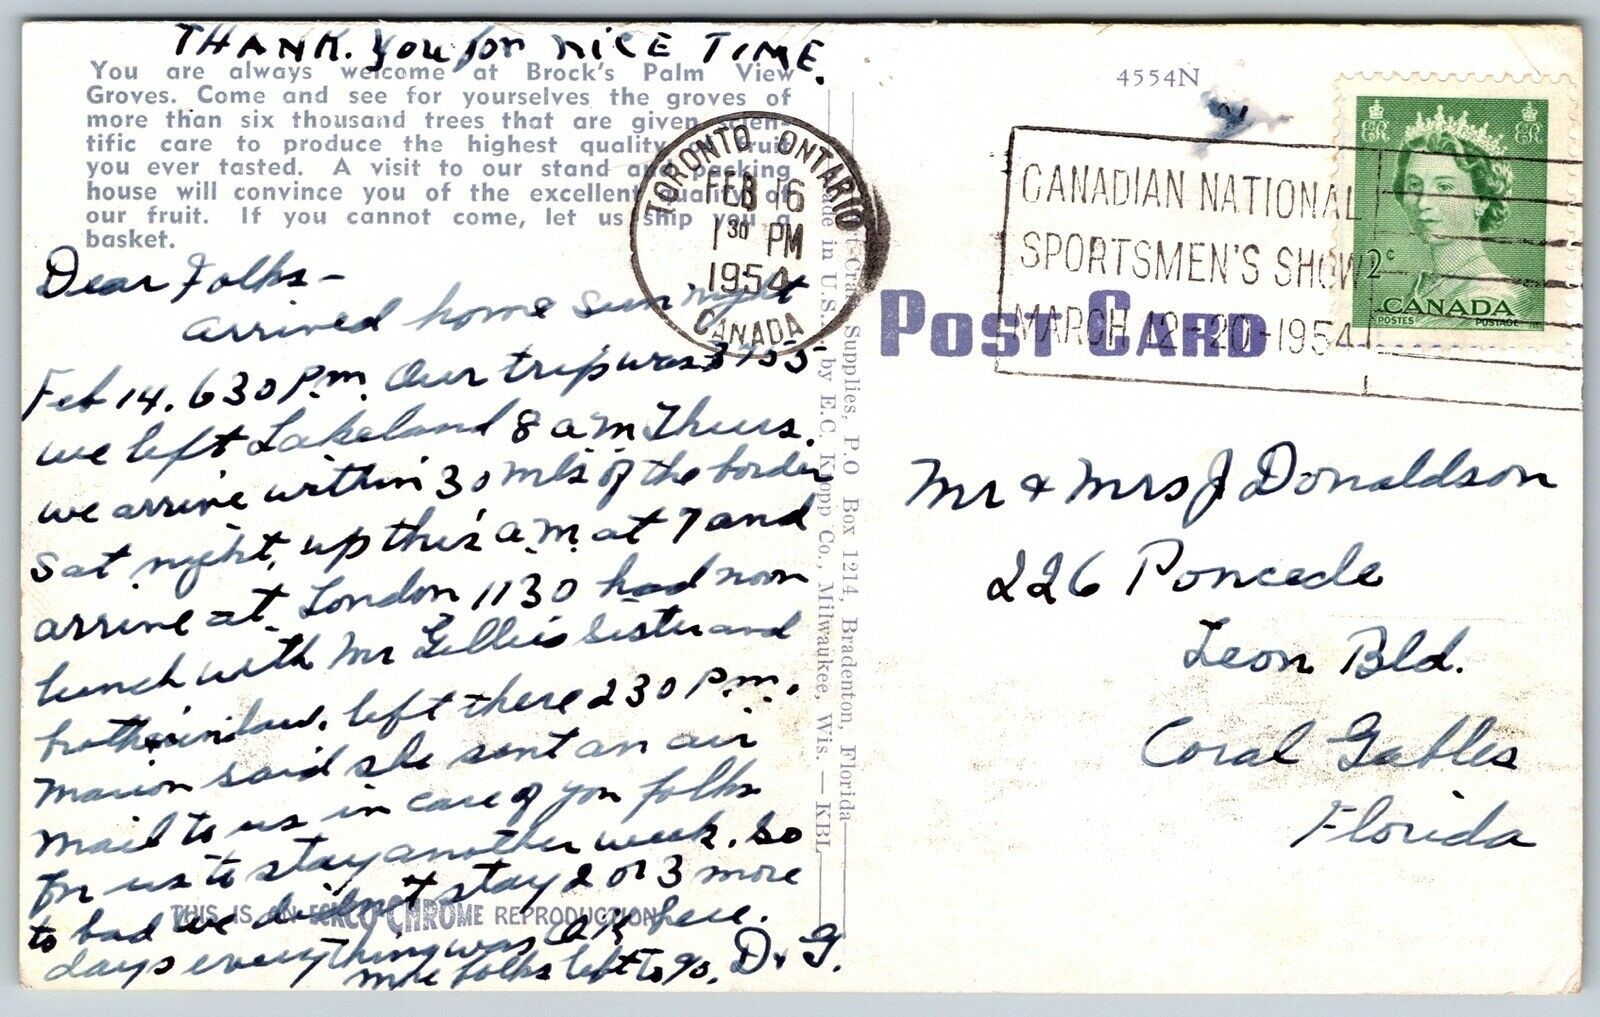 THANK. you for NICE TIME.
You are always welcome at Brock's Palm View
Groves. Come and see for yourselves the groves of
more than six thousand trees that are given scien-
tific care to produce the highest quality of fruit
you ever tasted. A visit to our stand and packing
house will convince you of the excellent quality of
our fruit. If you cannot come, let us ship you a
basket.
Dear Folks-
arrived home Sun night
Feb 14. 630 P.m. Our trip was 3755
we left Lakeland 8 am Thurs.
we arrive within 30 mls of the border
Sat night, up this a.m. at 7 and
arrive at London 1130 had noon
lunch with Mr Gillies sister and
brotherinlaw. left there 230 p.m.
Marion said she sent an air
mail to us in care of you folks
for us to stay another week. So
to bad we didnt stay 2 or 3 more
days everything was OK here.
more folks left to go. D & G.
THIS IS AN EKCO CHROME REPRODUCTION
4554N
TORONTO ONTARIO
FEB 16
1 30 PM
1954
CANADA
CANADIAN NATIONAL
SPORTSMEN'S SHOW
MARCH 12-20-1954
ER ER
2c
CANADA
POSTES POSTAGE
POST CARD
Supplies, P.O Box 1214, Bradenton, Florida
Made in U.S. by E.C. Kropp Co., Milwaukee, Wis. — KBL
Mr & Mrs J Donaldson
226 Poncede
Leon Bld.
Coral Gables
Florida